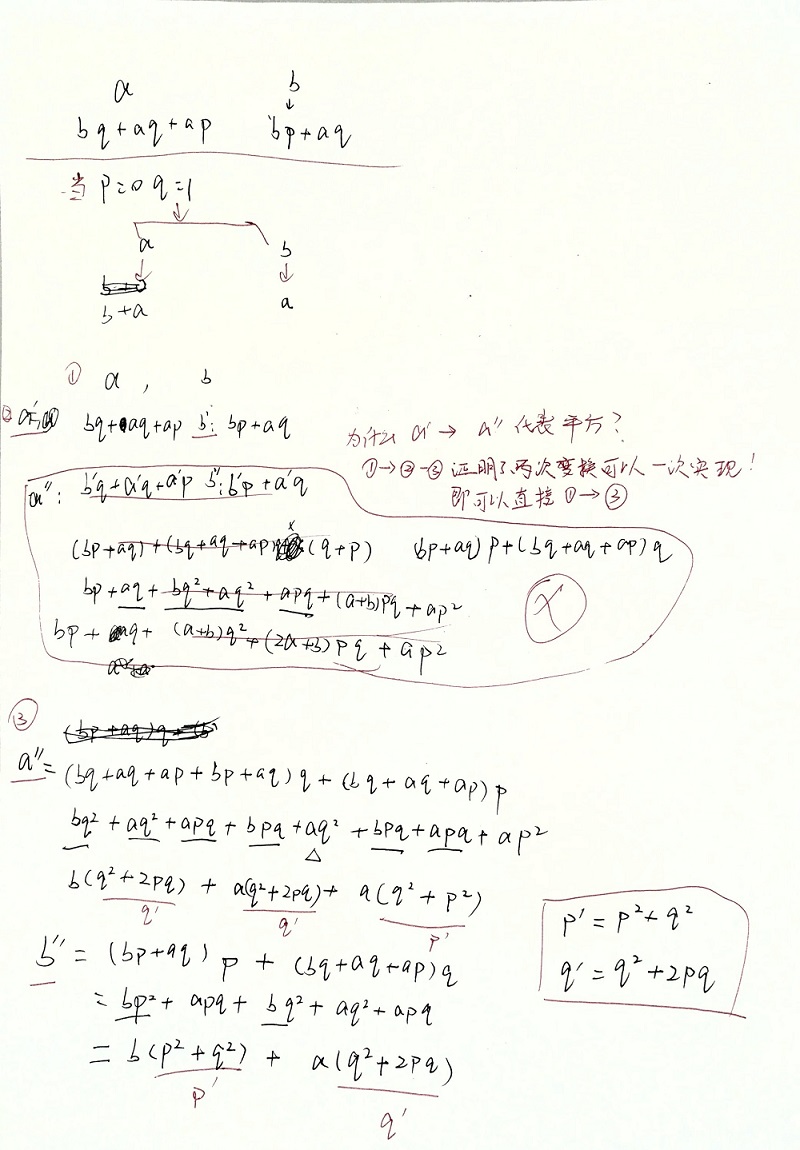 a b
↓
bq+aq+ap bp+aq
当 p=0 q=1
a b
b+a a
① a , b
② a': bq+aq+ap b': bp+aq
为什么 a' → a'' 代表平方?
①→②→③ 证明了两次变换可以一次实现!
即可以直接 ①→③
a'': b'q+a'q+a'p b'': b'p+a'q
(bp+aq)+(bq+aq+ap) (q+p) (bp+aq)p+(bq+aq+ap)q
bp+aq+bq²+aq²+apq+(a+b)pq+ap²
bp+aq+(a+b)q²+(2a+b)pq+ap²
X
③
a''=(bq+aq+ap+bp+aq)q+(bq+aq+ap)p
bq²+aq²+apq+bpq+aq²+bpq+apq+ap²
△
b(q²+2pq)+a(q²+2pq)+a(q²+p²)
q' q' p'
p'=p²+q²
q'=q²+2pq
b''=(bp+aq)p+(bq+aq+ap)q
=bp²+apq+bq²+aq²+apq
=b(p²+q²)+a(q²+2pq)
p' q'